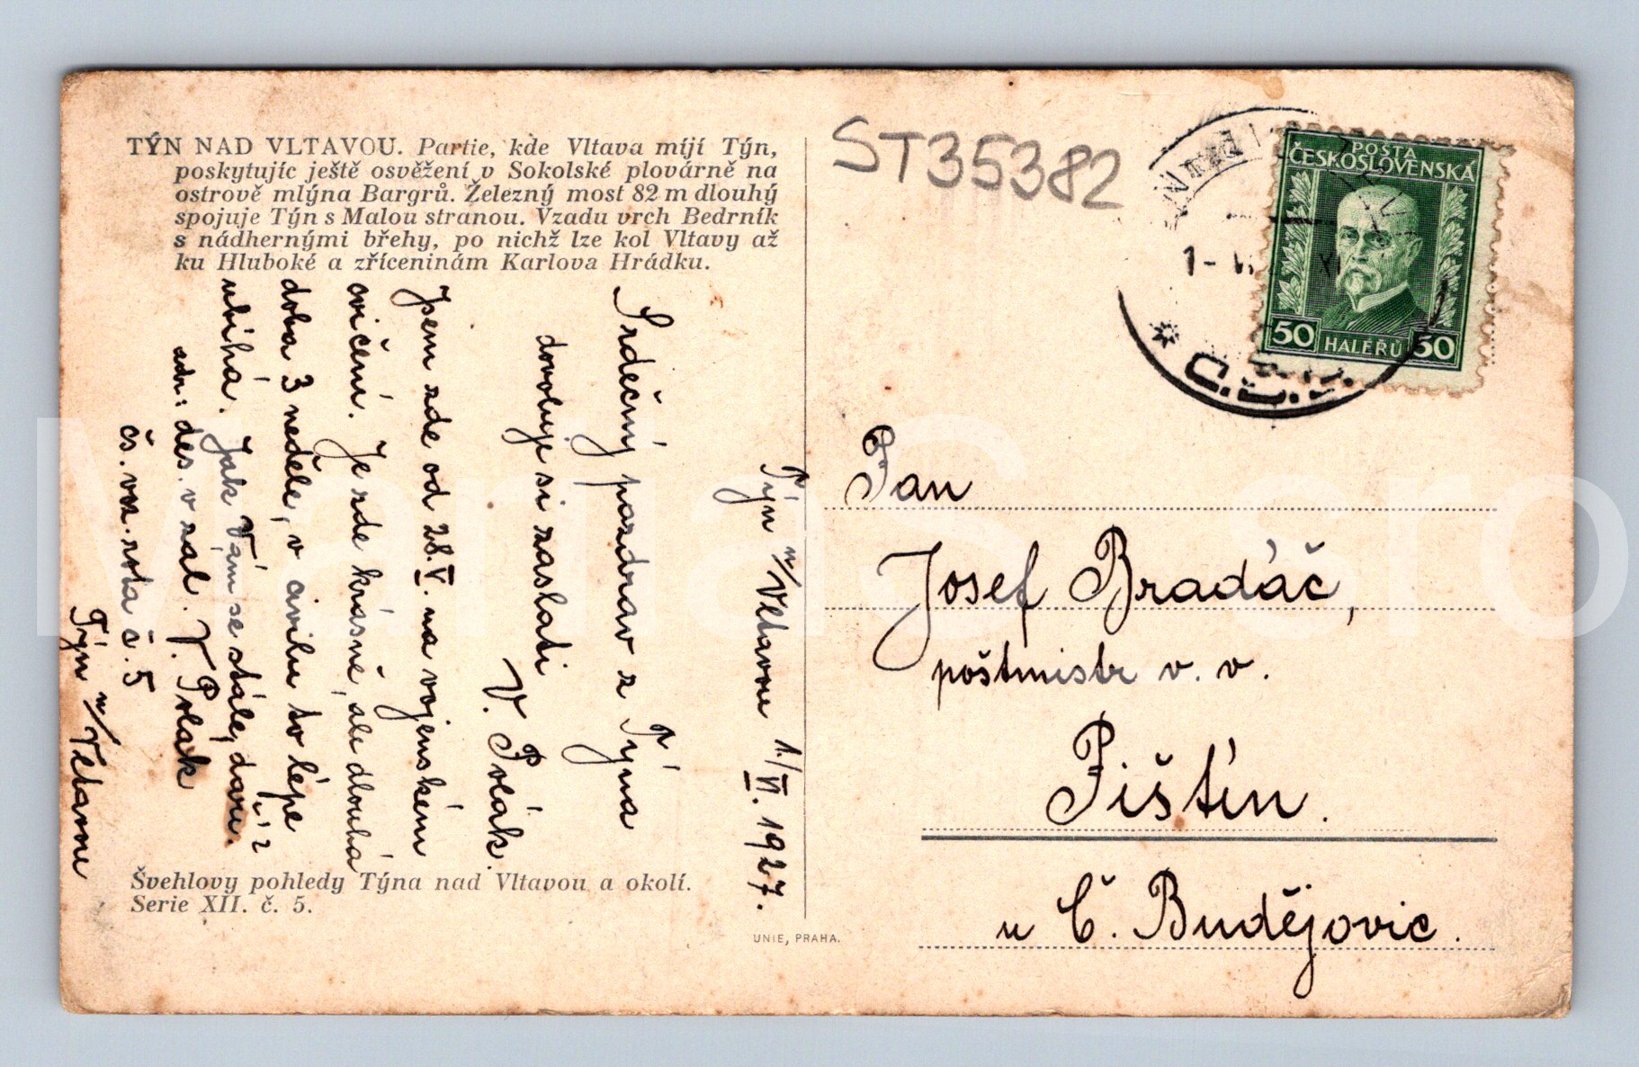 TÝN NAD VLTAVOU. Partie, kde Vltava míjí Týn,
poskytujíc ještě osvěžení v Sokolské plovárně na
ostrově mlýna Bargrů. Železný most 82 m dlouhý
spojuje Týn s Malou stranou. Vzadu vrch Bedrník
s nádhernými břehy, po nichž lze kol Vltavy až
ku Hluboké a zříceninám Karlova Hrádku.
Týn n/Vltavou 1./VI. 1927.
Srdečný pozdrav z Týna
dovoluje si zaslati
V. Polák.
Jsem zde od 28.V. na vojenském
cvičení. Je zde krásně, ale dlouhá
doba 3 neděle, v civilu to lépe
ubíhá. Jak Vám se stále daří?
adr: des. v zál. V. Polák
čs. voz. rota č. 5
Týn n/Vltavou
Švehlovy pohledy Týna nad Vltavou a okolí.
Serie XII. č. 5.
UNIE, PRAHA.
ST35382
POŠTA
ČESKOSLOVENSKÁ
50 HALÉŘŮ 50
1-VI
* Č.S.
Pan
Josef Bradáč,
poštmistr v. v.
Pištín.
u Č. Budějovic.